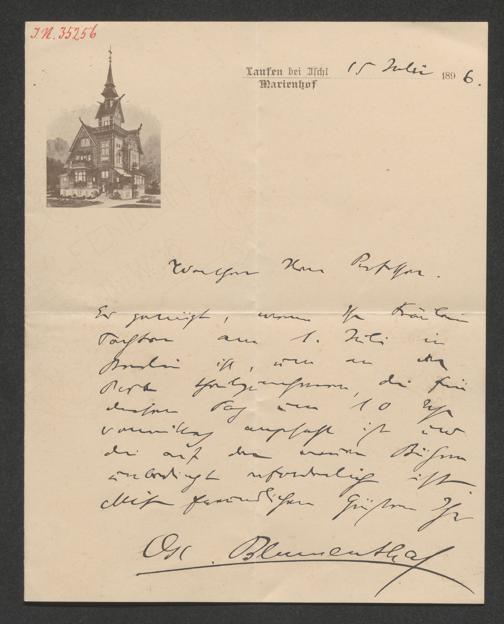 I.N. 35256
Laufen bei Ischl 15 Juli 1896.
Marienhof
Werther Herr Professor.
Es genügt, wenn Ihr Fräulein
Tochter am 1. Juli in
Berlin ist, um an der
Probe theilzunehmen, die für
diesen Tag um 10 Uhr
vormittag angesetzt ist und
die auf der neuen Bühne
unbedingt erforderlich ist.
Mit freundlichen Grüßen Ihr
Osc. Blumenthal